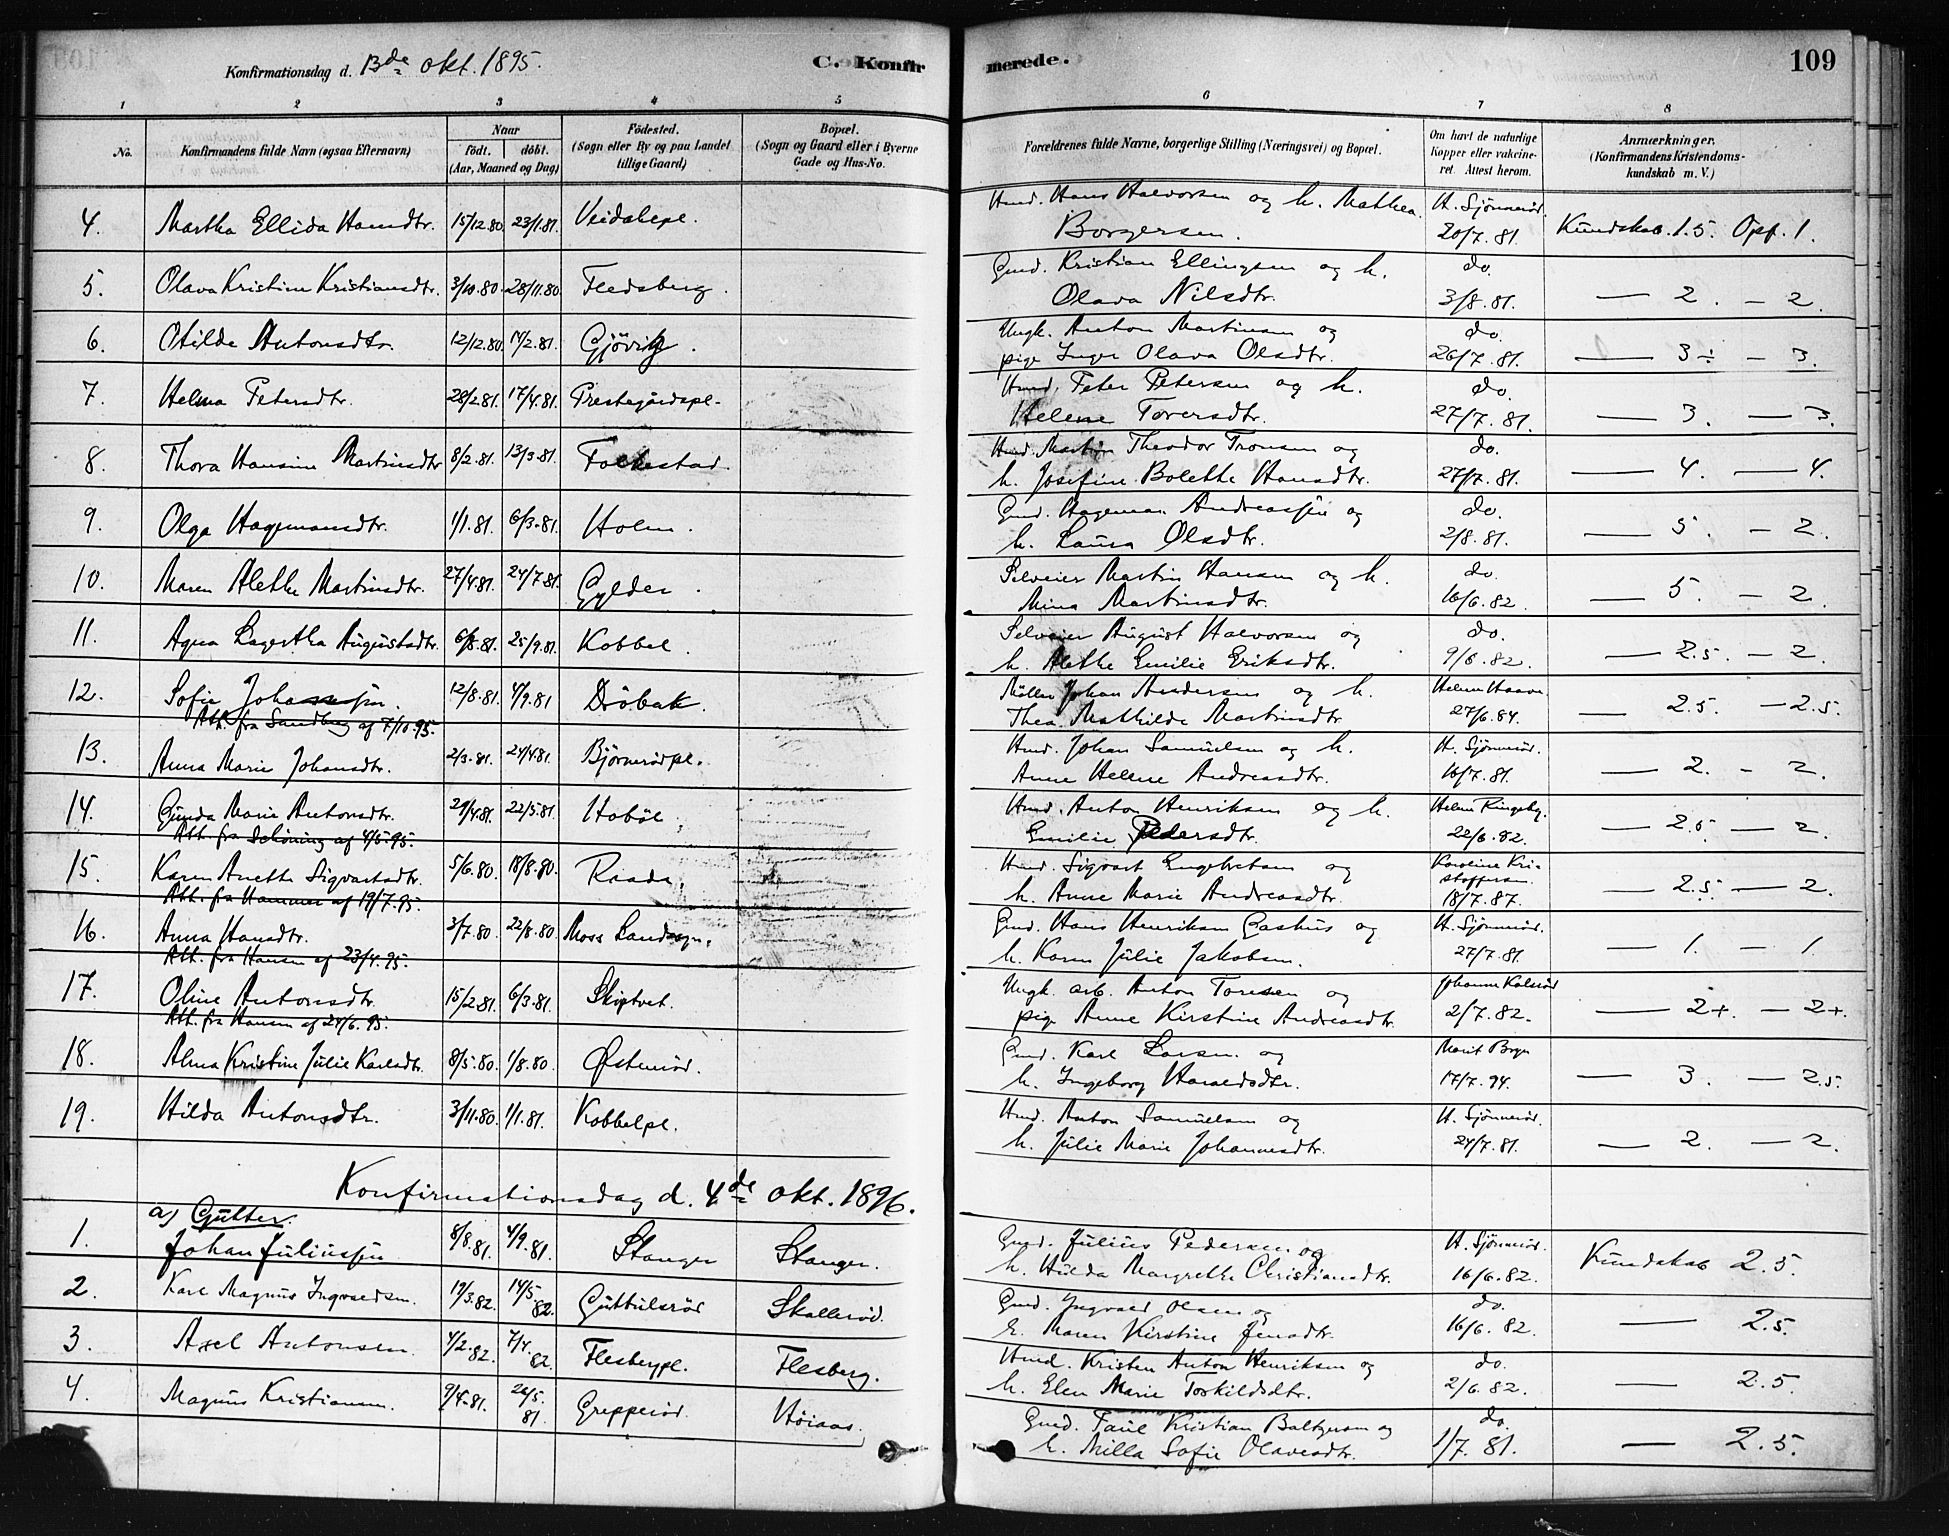 Konfirmationsdag d. 13de okt. 1895. C. Konfirmerede. 109
1 2 3 4 5 6 7 8
No. Konfirmandens fulde Navn (ogsaa Efternavn) Naar født. døbt. (Aar, Maaned og Dag) Fødested. (Sogn eller By og paa Landet tillige Gaard) Bopæl. (Sogn og Gaard eller i Byerne Gade og Hus-No. Forældrenes fulde Navne, borgerlige Stilling (Næringsvei) og Bopæl. Om havt de naturlige Kopper eller vakcineret. Attest herom. Anmærkninger. (Konfirmandens Kristendomskundskab m. V.)
4. Martha Ellida Hansdtr. 15/12.80 23/1.81. Hmd. Hans Halvorsen og h. Mathea H. Sjönneröd.
Borgersen. 20/7.81. Kundskab. 1.5. Opf. 1.
5. Olava Kristine Kristiansdtr. 3/10.80. 28/11.80. Gmd. Kristian Ellingsen og h. do.
Olava Nilsdtr. 3/8.81. — 2. — 2.
6. Otilde Antonsdtr. 12/12.80. Gjövig. Ungk. Anton Martinsen og do.
pige Inger Olava Olsdtr. 26/7.81. — 3÷ — 3.
7. Helma Petersdtr. 28/2.81. 17/4.81. Prestegårdspl. Hmd. Peter Petersen og h. do.
Helene Toversdtr. 27/7.81. — 3. — 3.
8. Thora Hansine Martinsdtr 8/2.81. 13/3.81. Folkestad. Hmd. Martin Theodor Tronsen og do.
h. Josefine Bolette Hansdtr. 27/7.81. — 4. — 4.
9. Olga Hagemansdtr. 1/1.81. 6/3.81. Holm. Gmd. Hageman Andreassen og do.
h. Laura Olsdtr. 2/8.81. — 5. — 2.
10. Maren Alethe Martinsdtr. 27/4.81. 24/7.81. Gylder. Selveier Martin Hansen og h. do.
Mina Martinsdtr. 16/6.82. — 5. — 2.
11. Agna Lagertha Augustsdtr. 6/8.81. 25/9.81. Kobbel. Selveier August Halvorsen og do.
h. Alethe Emilie Eriksdtr. 9/6.82. — 2.5. — 2.
12. Sofie Johansen. 12/8.81. 4/9.81 Dröbak. Möller Johan Andersen og h. Helene Haave
Att. fra Sandberg af 7/10.95. Thea Mathilde Martinsdtr 27/6.84. — 2.5. — 2.5.
13. Anna Marie Johansdtr. 2/3.81. 24/4.81. Bjørnerødpl. Hmd. Johan Samuelsen og h. H. Sjönneröd.
Anne Helene Andreasdtr. 16/7.81. — 2. — 2.
14. Gunda Marie Antonsdtr. 29/4.81. 22/5.81. Hobøl. Hmd. Anton Henriksen og h. Helene Ringeby.
Att. fra Schöning af 4/5.95. Emilie Pedersdtr. 22/6.82. — 2.5 — 2.
15. Karen Anette Sigvartsdtr. 5/6.80. 18/8.80. Raade. Hmd. Sigvart Engebretsen og Karoline Kristoffersen
Att. fra Hammer af 19/7.95. h. Anne Marie Andreasdtr. 18/7.87. — 2.5 — 2.
16. Anna Hansdtr. 3/7.80. 22/8.80. Moss Landsogn. Gmd. Hans Henriksen Cashus og H. Sjönnerød.
Att. fra Hansen af 23/4.95. h. Karen Julie Jakobsen. 27/7.81. — 1. — 1.
17. Oline Antonsdtr. 15/2.81. 6/3.81. Skiptvet. Ungk. arb. Anton Toresen og
Att. fra Hansen af 24/6.95. pige Anne Kirstine Andreasdtr. 2/7.82. — 2+. — 2+.
18. Alma Kristine Julie Karlsdtr. 8/5.80. 1/8.80. Østenröd. Gmd. Karl Larsen og Marit Bryn
h. Ingeborg Haraldsdtr. 17/7.94. — 3. — 2.5.
19. Hilda Antonsdtr. 3/11.80. 1/1.81. Kobbelpl. Hmd. Anton Samuelsen og H. Sjönneröd.
h. Julie Marie Johannesdtr. 24/7.81. — 2. — 2.
Konfirmationsdag d. 4de okt. 1896.
a) Gutter.
1. Johan Juliussen 8/8.81. 4/9.81. Stanger Stanger. Gmd. Julius Pedersen og H. Sjönneröd.
h. Hulda Margrethe Christiansdtr. 16/6.82. Kundskab 2.5.
2. Karl Magnus Ingvaldsen. 19/3.82. 14/5.82. Guttulsröd Skallerød. Gmd. Ingvald Olsen og do.
h. Maren Kirstine Jensdtr. 16/6.82. — 2.5.
3. Axel Antonsen. 4/2.82. 7/4.82. Flesbergpl. Flesberg. Hmd. Kristen Anton Henriksen og do.
h. Elen Marie Torkildsdtr. 2/6.82. — 2.5.
4. Magnus Kristiansen. 9/4.81. 26/5.81. Grepperöd. Höiaas. Gmd. Paul Kristian Baltzersen og do.
h. Milla Sofie Olavesdtr. 1/7.81. — 2.5.